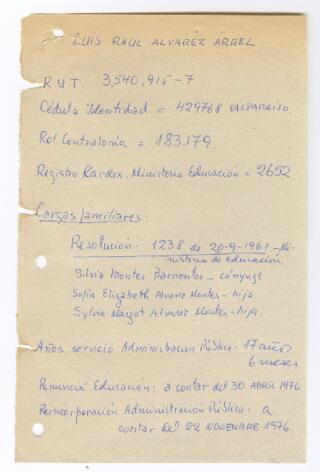 LUIS RAUL ALVAREZ ARGEL
R.U.T 3,540,915-7
Cédula Identidad = 429768 VALPARAISO.
Rol Contraloría = 183.179.
Registro Kardex. Ministerio Educación = 2652
Cargas familiares:
Resolución. 1238 de 20-9-1961.- Mi-
nisterio de Educación.
Silvia Montes Barrientos - cónyuge
Sofia Elizabeth Alvarez Montes - hija
Sylvia Margot Alvarez Montes - hija.
Años servicio Administración Pública: 17 años
6 meses
Renunció Educación: a contar del 30 ABRIL 1976
Reincorporación Administración Pública: a
contar del 22 NOVIEMBRE 1976